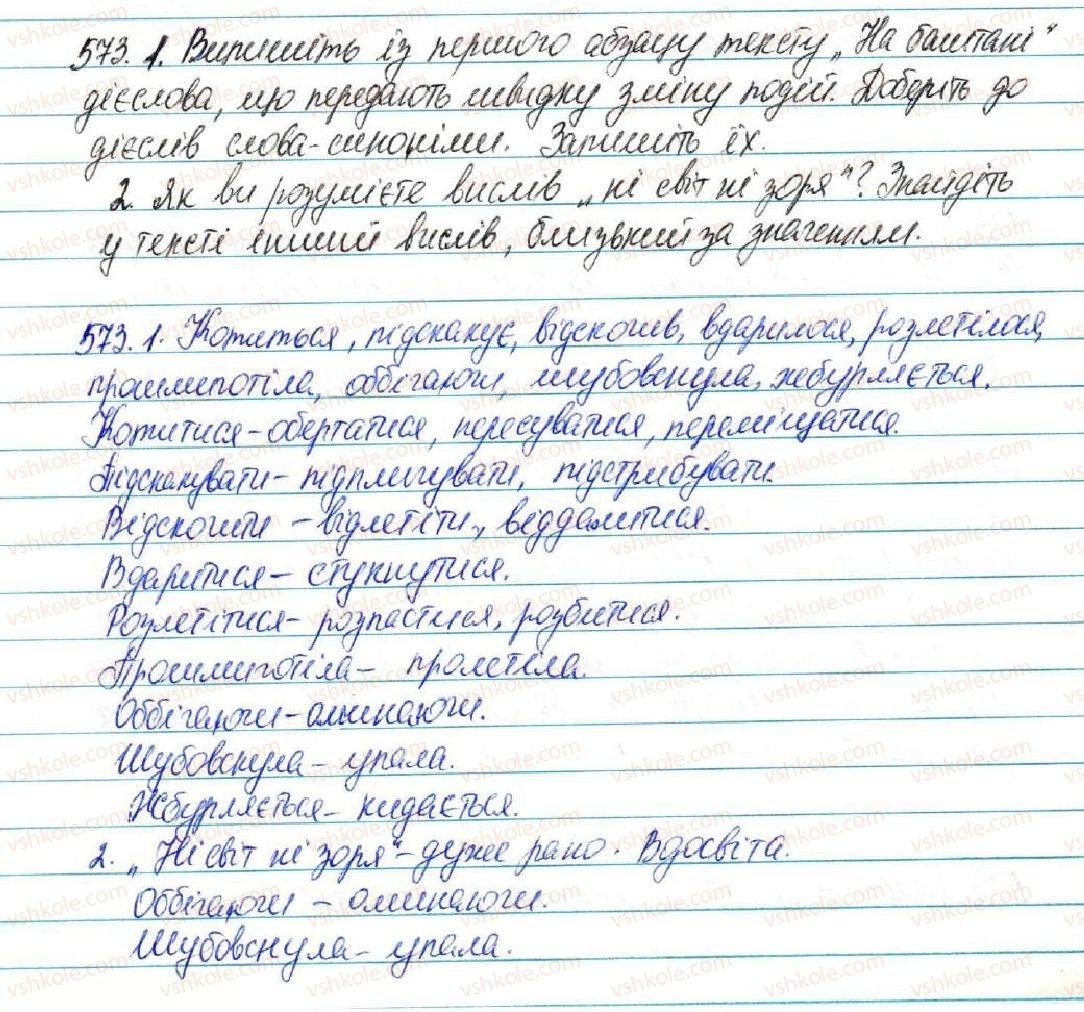 573. 1. Випишіть із першого абзацу тексту „На баштані"
дієслова, що передають швидку зміну подій. Доберіть до
дієслів слова-синоніми. Запишіть їх.
2. Як ви розумієте вислів „ні світ ні зоря"? Знайдіть
у тексті інший вислів, близький за значенням.
573. 1. Котиться, підскакує, відскочив, вдарилося, розлетілося,
прошмиготіла, оббігаючи, шубовснула, жбурляється.
Котитися – обертатися, пересуватися, переміщатися.
Підскакувати – підплигувати, підстрибувати.
Відскочити – відлетіти, віддалитися.
Вдаритися – стукнутися.
Розлетітися – розпастися, розбитися.
Прошмиготіла – пролетіла.
Оббігаючи – оминаючи.
Шубовснула – упала.
Жбурляється – кидається.
2. „Ні світ ні зоря" – дуже рано. Вдосвіта.
Оббігаючи – оминаючи.
Шубовснула – упала.